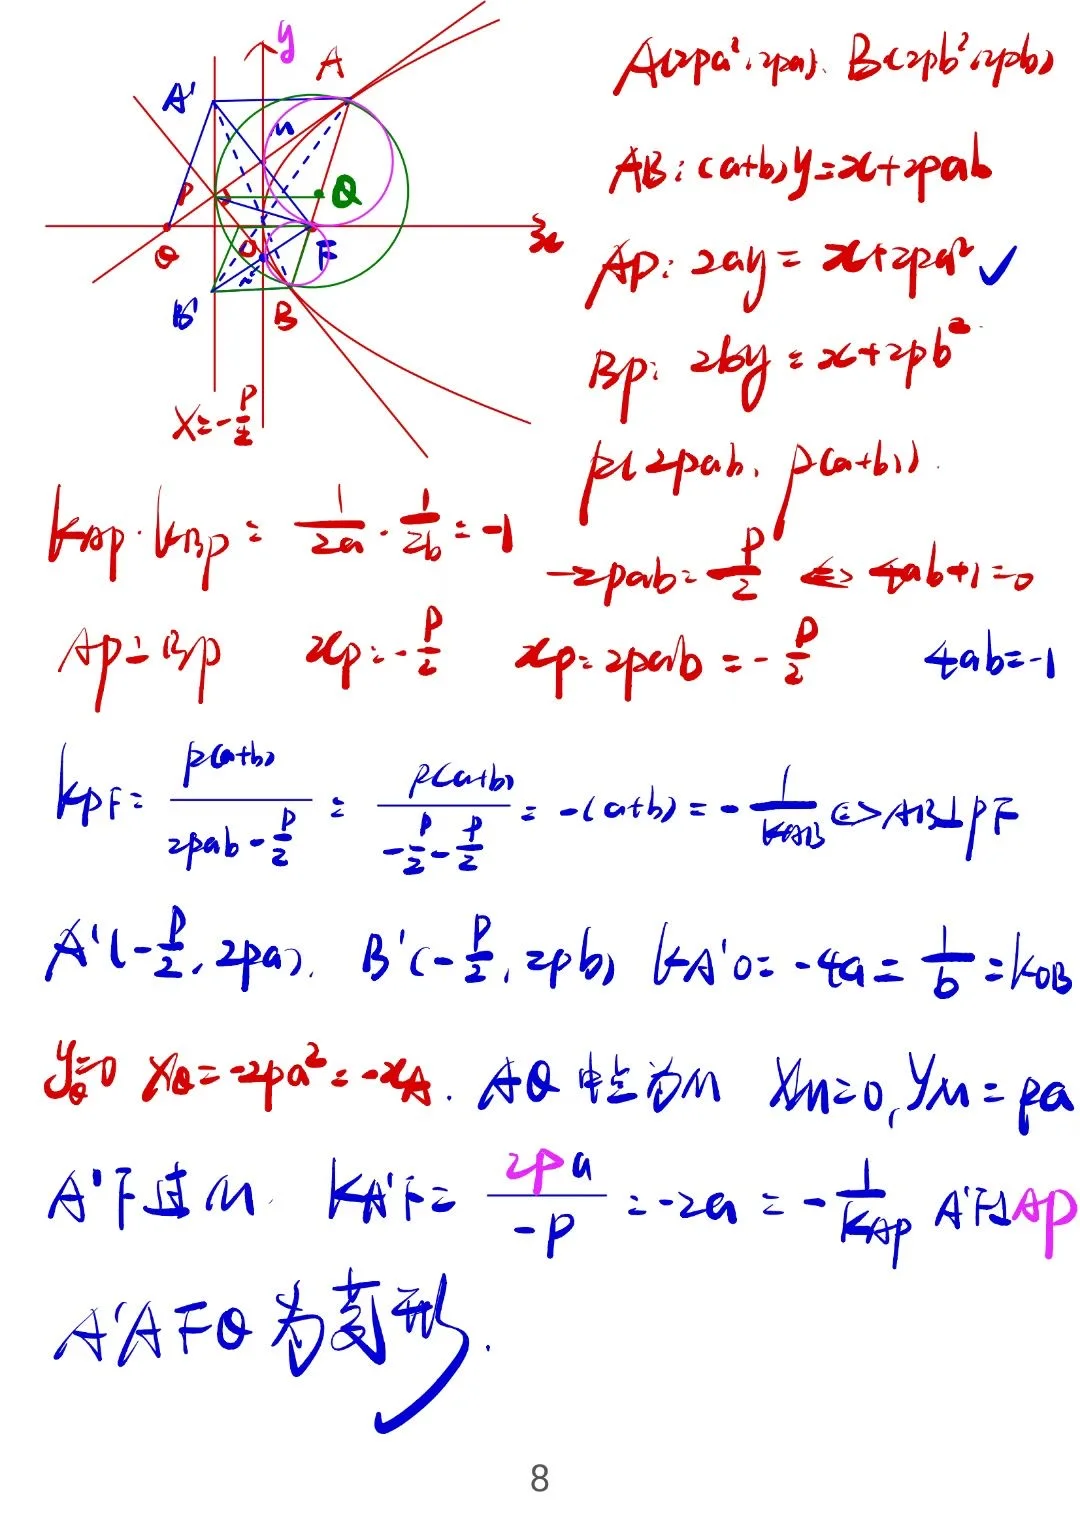 y
A
A'
M
P
Q
x
θ
O
F
N
B'
B
x=-p/2
A(2pa²,2pa). B(2pb²,2pb)
AB:(a+b)y=x+2pab
AP: 2ay=x+2pa² ✓
BP: 2by=x+2pb²
P(2pab, p(a+b)).
k_AP·k_BP = 1/2a · 1/2b = -1
-2pab=p/2 ⇔ 4ab+1=0
AP⊥BP x_P=-p/2 x_P=2pab=-p/2 4ab=-1
k_PF= p(a+b)/(2pab-p/2) = p(a+b)/(-p/2-p/2) = -(a+b) = -1/k_AB ⇔ AB⊥PF
A'(-p/2, 2pa). B'(-p/2, 2pb) k_A'O=-4a=1/b=k_OB
y_θ=0 x_θ=-2pa²=-x_A. Aθ 中点为M x_M=0, y_M=pa
A'F过M. k_A'F= 2pa/-p =-2a=-1/k_AP A'F⊥AP
A'AFθ为菱形.
8